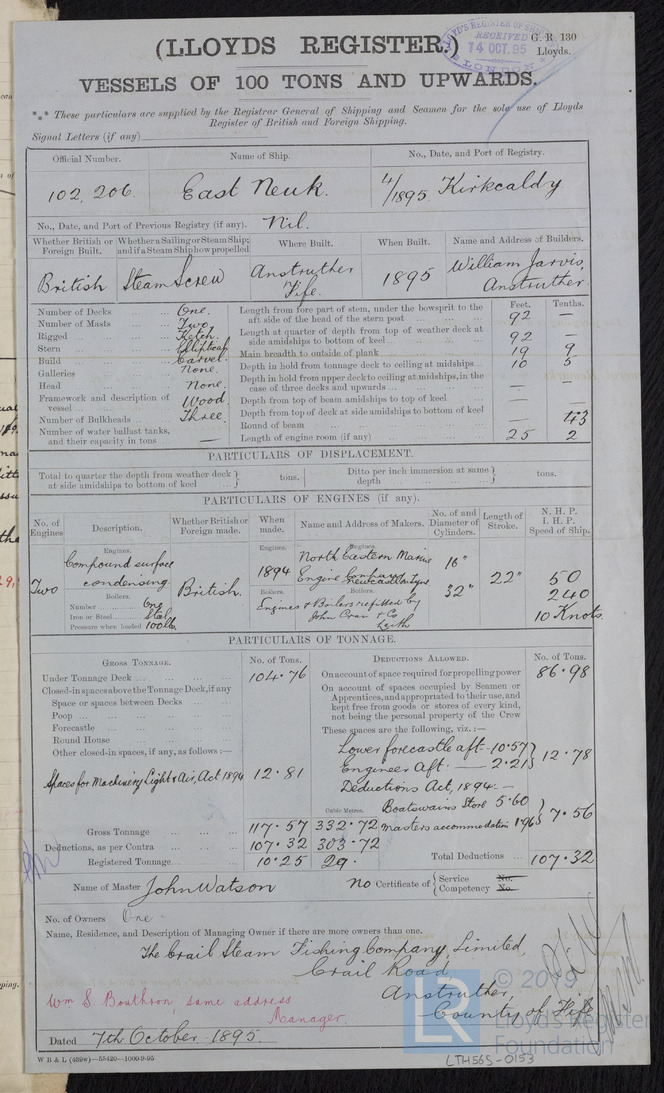 (LLOYDS REGISTER.)
G. R. 130
Lloyds.
LLOYD'S REGISTER OF
RECEIVED
14 OCT. 95
LONDON
VESSELS OF 100 TONS AND UPWARDS.
*** These particulars are supplied by the Registrar General of Shipping and Seamen for the sole use of Lloyds
Register of British and Foreign Shipping.
Signal Letters (if any)
Official Number. Name of Ship. No., Date, and Port of Registry.
102,206. East Neuk. 4/1895. Kirkcaldy
No., Date, and Port of Previous Registry (if any). Nil.
Whether British or Foreign Built. Whether a Sailing or Steam Ship; and if a Steam Ship how propelled Where Built. When Built. Name and Address of Builders.
British Steam Screw Anstruther Fife. 1895 William Jarvis, Anstruther
Feet. Tenths.
Number of Decks One. Length from fore part of stem, under the bowsprit to the aft side of the head of the stern post 92 —
Number of Masts Two.
Rigged Ketch. Length at quarter of depth from top of weather deck at side amidships to bottom of keel 92 —
Stern Elliptical
Build Carvel. Main breadth to outside of plank 19 9
Galleries None. Depth in hold from tonnage deck to ceiling at midships 10 5
Head None. Depth in hold from upper deck to ceiling at midships, in the case of three decks and upwards — —
Framework and description of vessel Wood. Depth from top of beam amidships to top of keel —
Number of Bulkheads Three. Depth from top of deck at side amidships to bottom of keel —
Number of water ballast tanks, and their capacity in tons — Round of beam
Length of engine room (if any) 25 2
PARTICULARS OF DISPLACEMENT.
Total to quarter the depth from weather deck at side amidships to bottom of keel } tons. Ditto per inch immersion at same depth } tons.
PARTICULARS OF ENGINES (if any).
No. of Engines Description. Whether British or Foreign made. When made. Name and Address of Makers. No. of and Diameter of Cylinders. Length of Stroke. N. H. P. I. H. P. Speed of Ship.
Engines. Engines. Engines.
Two Compound surface condensing British. 1894 North Eastern Marine Engine Company Newcastle on Tyne 16" 32" 22" 50 240 10 Knots
Boilers. Boilers. Boilers.
Number One Engines & Boilers refitted by
Iron or Steel Steel John Cran & Co
Pressure when loaded 100 lb. Leith
PARTICULARS OF TONNAGE.
GROSS TONNAGE. No. of Tons. DEDUCTIONS ALLOWED. No. of Tons.
Under Tonnage Deck 104.76 On account of space required for propelling power 86.98
Closed-in spaces above the Tonnage Deck, if any On account of spaces occupied by Seamen or
Space or spaces between Decks Apprentices, and appropriated to their use, and
Poop kept free from goods or stores of every kind,
Forecastle not being the personal property of the Crew
Round House These spaces are the following, viz.:—
Other closed-in spaces, if any, as follows:— Lower forecastle aft — 10.57 } 12.78
Engineer Aft. — 2.21
Spaces for Machinery Light & Air, Act 1894 12.81 Deductions Act, 1894 —
Cubic Metres. Boatswains Store 5.60 } 7.56
Gross Tonnage 117.57 332.72 Masters accommodation 1.96
Deductions, as per Contra 107.32 303.72
Registered Tonnage 10.25 29. Total Deductions 107.32
Name of Master John Watson No Certificate of { Service No. Competency No.
No. of Owners One
Name, Residence, and Description of Managing Owner if there are more owners than one.
The Crail Steam Fishing Company, Limited,
Crail Road,
Anstruther,
County of Fife
Wm S. Bonthron, same address
Manager.
Dated 7th October 1895.
W B & L (459w)—55420—1000-9-95
LTH565-0153
LR
© 2019
Lloyd's Register
Foundation